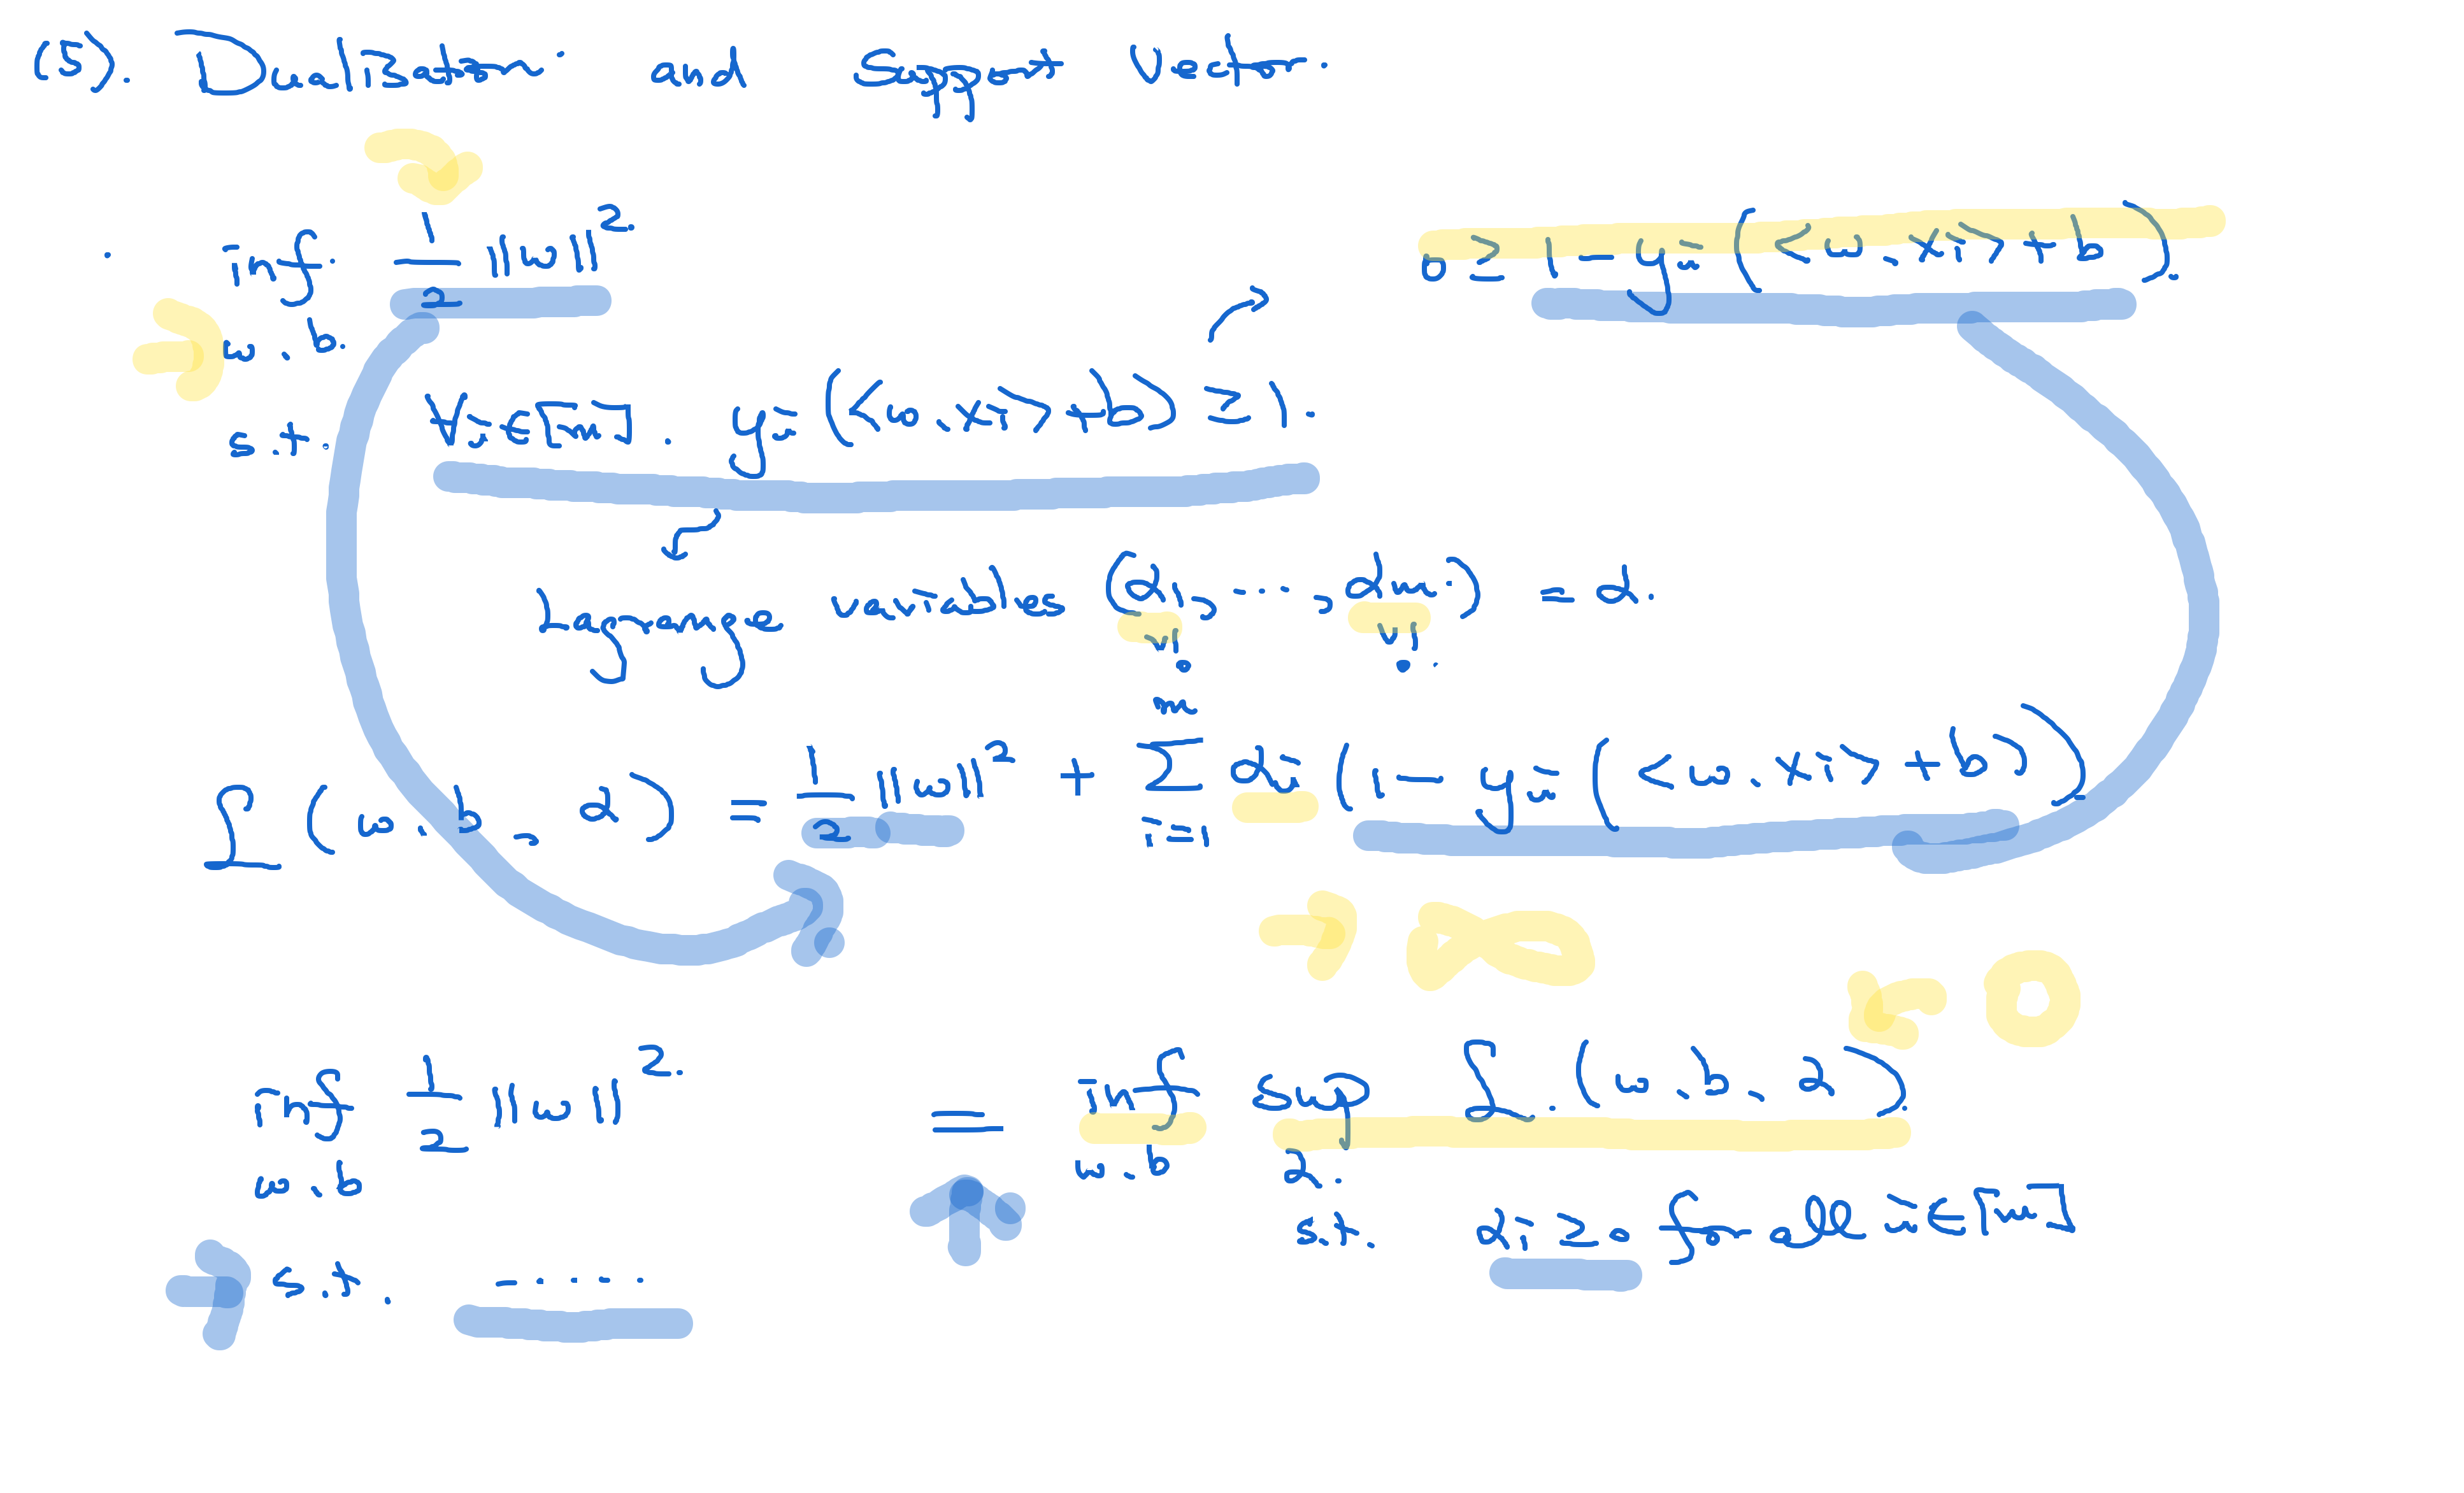 (5). Dualization and Support Vector.
inf 1/2 ||w||². 0 ≥ 1 - yᵢ(<w, xᵢ> + b).
w, b.
s.t. ∀i∈[m]. yᵢ(<w, xᵢ> + b) ≥ 1.
Lagrange variables (α₁, ..., αₘ) = α.
≥ 0 ≥ 0.
L(w, b, α) = 1/2 ||w||² + Σᵢ₌₁ᵐ αᵢ (1 - yᵢ(<w, xᵢ> + b))
→ ∞
← 0
inf 1/2 ||w||². = inf sup L(w, b, α).
w, b w, b α.
s.t. ..... s.t. αᵢ ≥ 0 for all i∈[m]